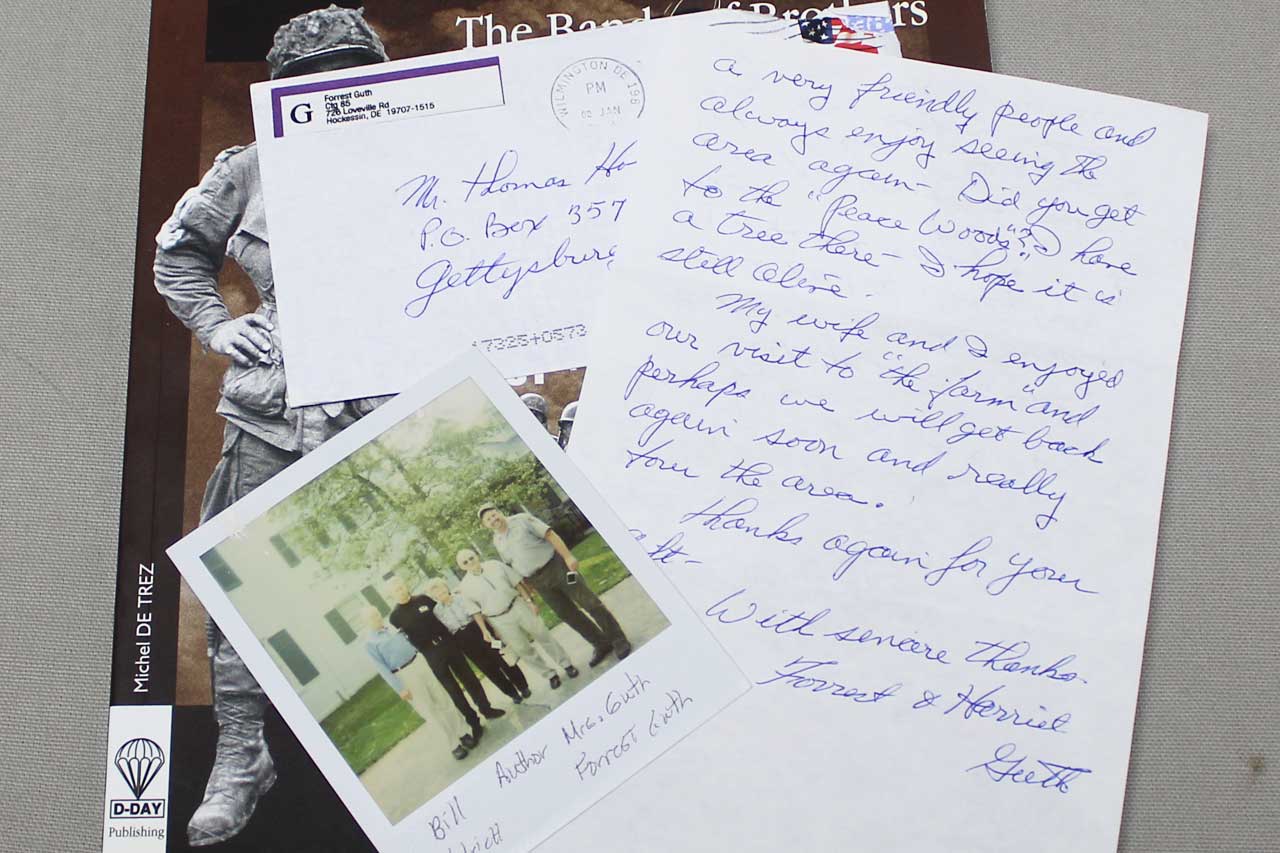 The Band of Brothers
G
Forrest Guth
Ctg 85
726 Loveville Rd
Hockessin, DE 19707-1515
WILMINGTON DE 198
PM
02 JAN
Mr. Thomas
P.O. Box 357
Gettysburg
17325+0573
a very friendly people and
always enjoy seeing the
area again- Did you get
to the "Peace Woods"? I have
a tree there- I hope it is
still alive.
My wife and I enjoyed
our visit to "the farm" and
perhaps we will get back
again soon and really
tour the area.
Thanks again for your
With sencere thanks-
Forrest & Harriet
Guth
Author Mrs. Guth
Forrest Guth
Bill
Michel DE TREZ
D-DAY
Publishing